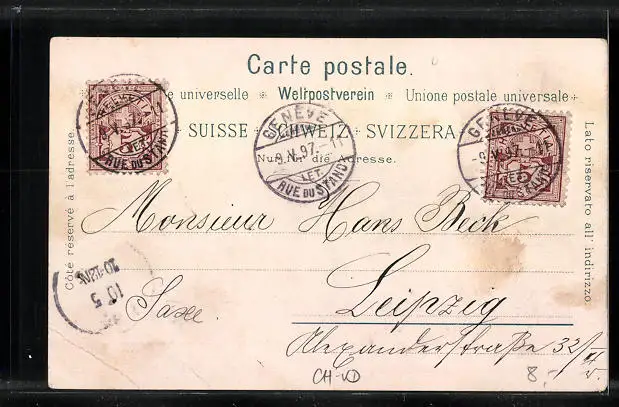 Carte postale.
universelle * Weltpostverein * Unione postale universale
SUISSE * SCHWEIZ * SVIZZERA
Nur für die Adresse.
Côté réservé à l'adresse.
Lato riservato all' indirizzo.
GENÈVE
-9.V.97.-11
LET.
RUE DU STAND
GENÈVE
-9.V.97.-11
RUE DU STAND
LET.
RUE DU STAND
Monsieur Hans Beck
Leipzig
Saxe.
Alexanderstraße 32/II
10 5
10-12N
CH-VD
8.-